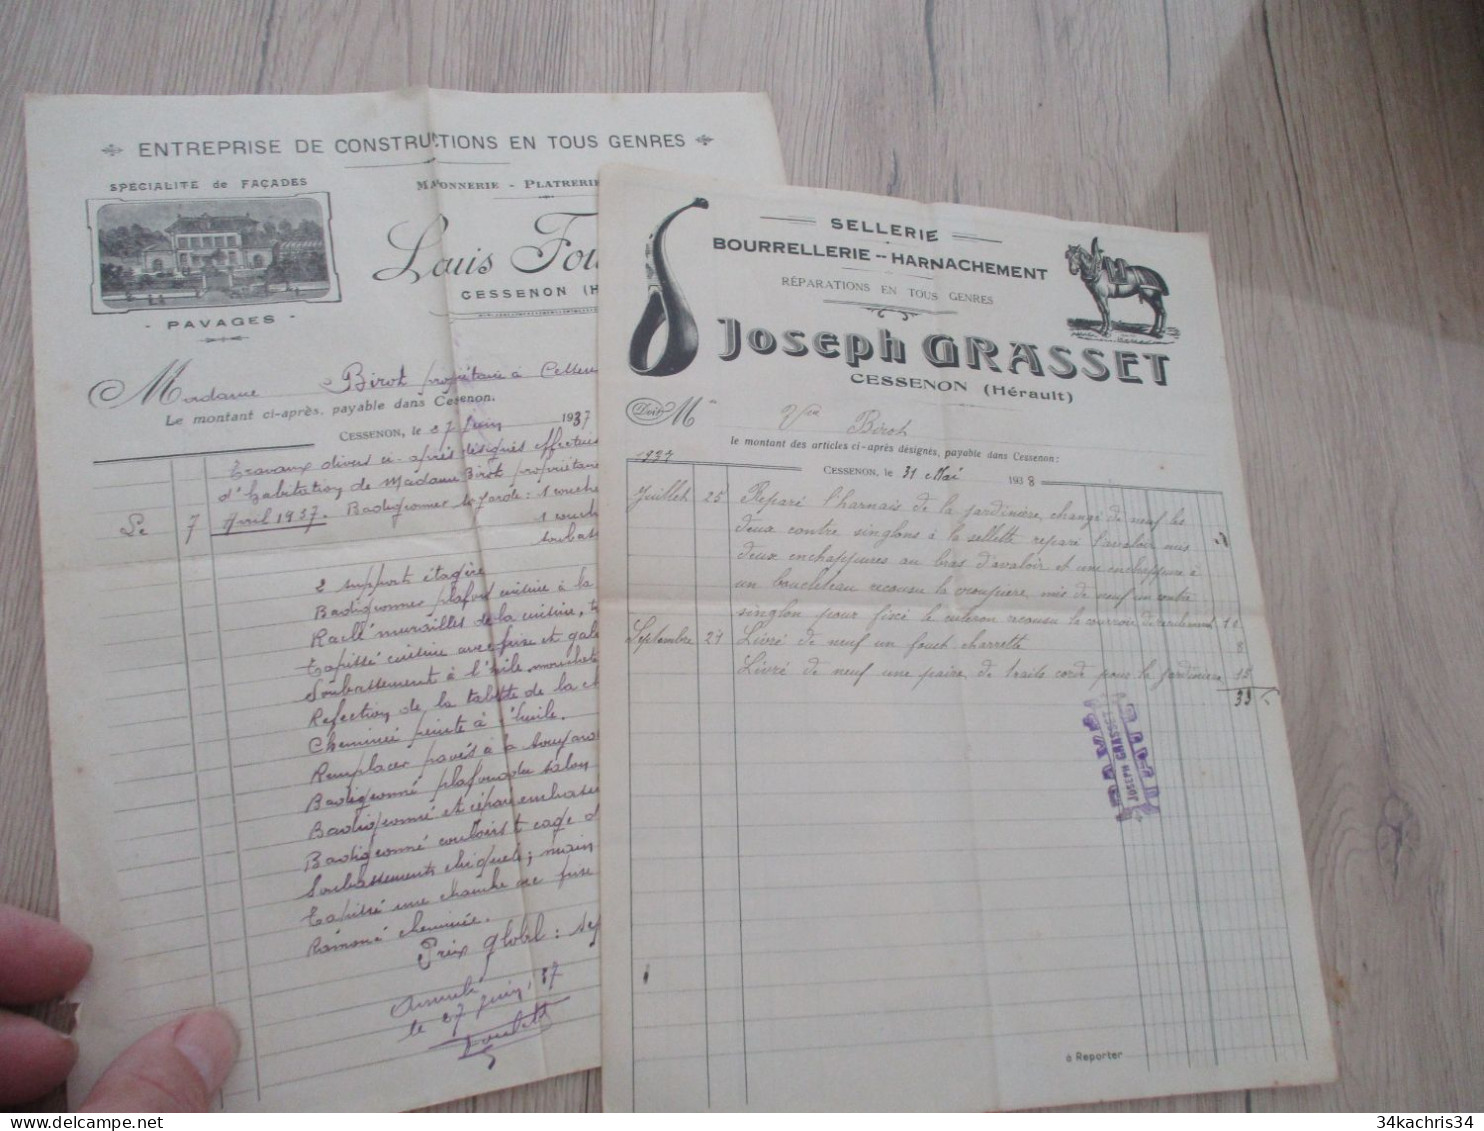 ENTREPRISE DE CONSTRUCTIONS EN TOUS GENRES
SPÉCIALITÉ de FAÇADES
MAÇONNERIE - PLATRERIE
Louis Fou
CESSENON (H
- PAVAGES -
Madame Birot propriétaire à Cessen
Le montant ci-après, payable dans Cesenon.
CESSENON, le 07 Juin 1937
Travaux divers ci-après désignés effectués
d'habitation de Madame Birot propriétaire
Le 7 Avril 1937. Badigeonner : 1 couche
1 couche
soubass
2 support étagère
Badigeonner plafond cuisine à la
Raclé murailles de la cuisine,
Tapissé cuisine avec frise et gal
Soubassement à l'huile,
Refection de la tablette de la
Cheminée peinte à l'huile.
Remplacer pavés à la
Badigeonné plafond du salon
Badigeonné et
Badigeonné couloirs et cage d
Soubassements ; main
Tapissé une chambre avec frise
Ramoné cheminée.
Prix global :
Acquitté
le 07 Juin, 37
SELLERIE
BOURRELLERIE -- HARNACHEMENT
RÉPARATIONS EN TOUS GENRES
Joseph GRASSET
CESSENON (Hérault)
Doit M Vve Birot
le montant des articles ci-après désignés, payable dans Cessenon:
1937 CESSENON, le 31 Mai 1938
Juillet 25 Reparé l'harnais de la jardinière, changé de neuf les
deux contre singlons à la sellette reparé l'avaloir mis
deux enchappures au bras d'avaloir et une enchappure à
un boucleteau recousu la croupiere, mis de neuf un contre
singlon pour fixé le culeron recousu le courroie de reculement 11
Septembre 27 Livré de neuf un fouet charrette 8
Livré de neuf une paire de traits corde pour la jardiniere
33
JOSEPH GRASSET
à Reporter
34kachris34